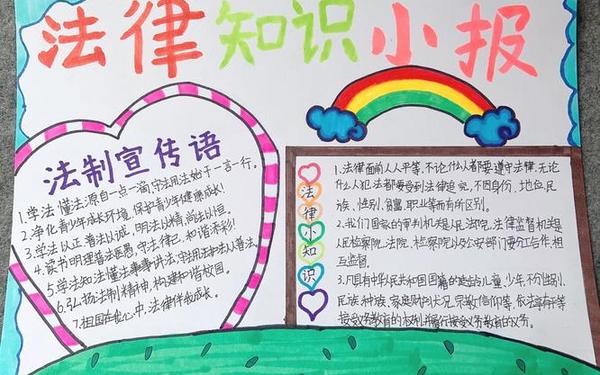 法律知识小报
法制宣传语
1.学法懂法源自一点一滴,守法用法始于一言一行。
2.净化青少年成长环境,保护青少年健康成长!
3.学法以正 普法以诚,明法以精,尚法以恒。
4.读书明理普法医愚,守法律己,和谐添彩!
5.学法知法懂法事事讲法,守法用法护法人人普法。
6.弘扬法制精神,构建和谐校园。
7.祖国在我心中,法律伴我成长。
法律小知识
1.法律面前人人平等,不论什么人都要遵守法律,无论
什么人犯法都要受到法律追究,不因身份、地位、民
族、性别、贫富、职业等而有所区别。
2.我们国家的审判机关是人民法院,法律监督机关是人
民检察院,法院、检察院以及公安部门要分工合作,相
互监督。
3.凡具有中华人民共和国国籍的适龄儿童、少年,不分性别、
民族、种族、家庭财产状况、宗教信仰等,依法享有平等
接受义务教育的权利,并履行接受义务教育的义务。